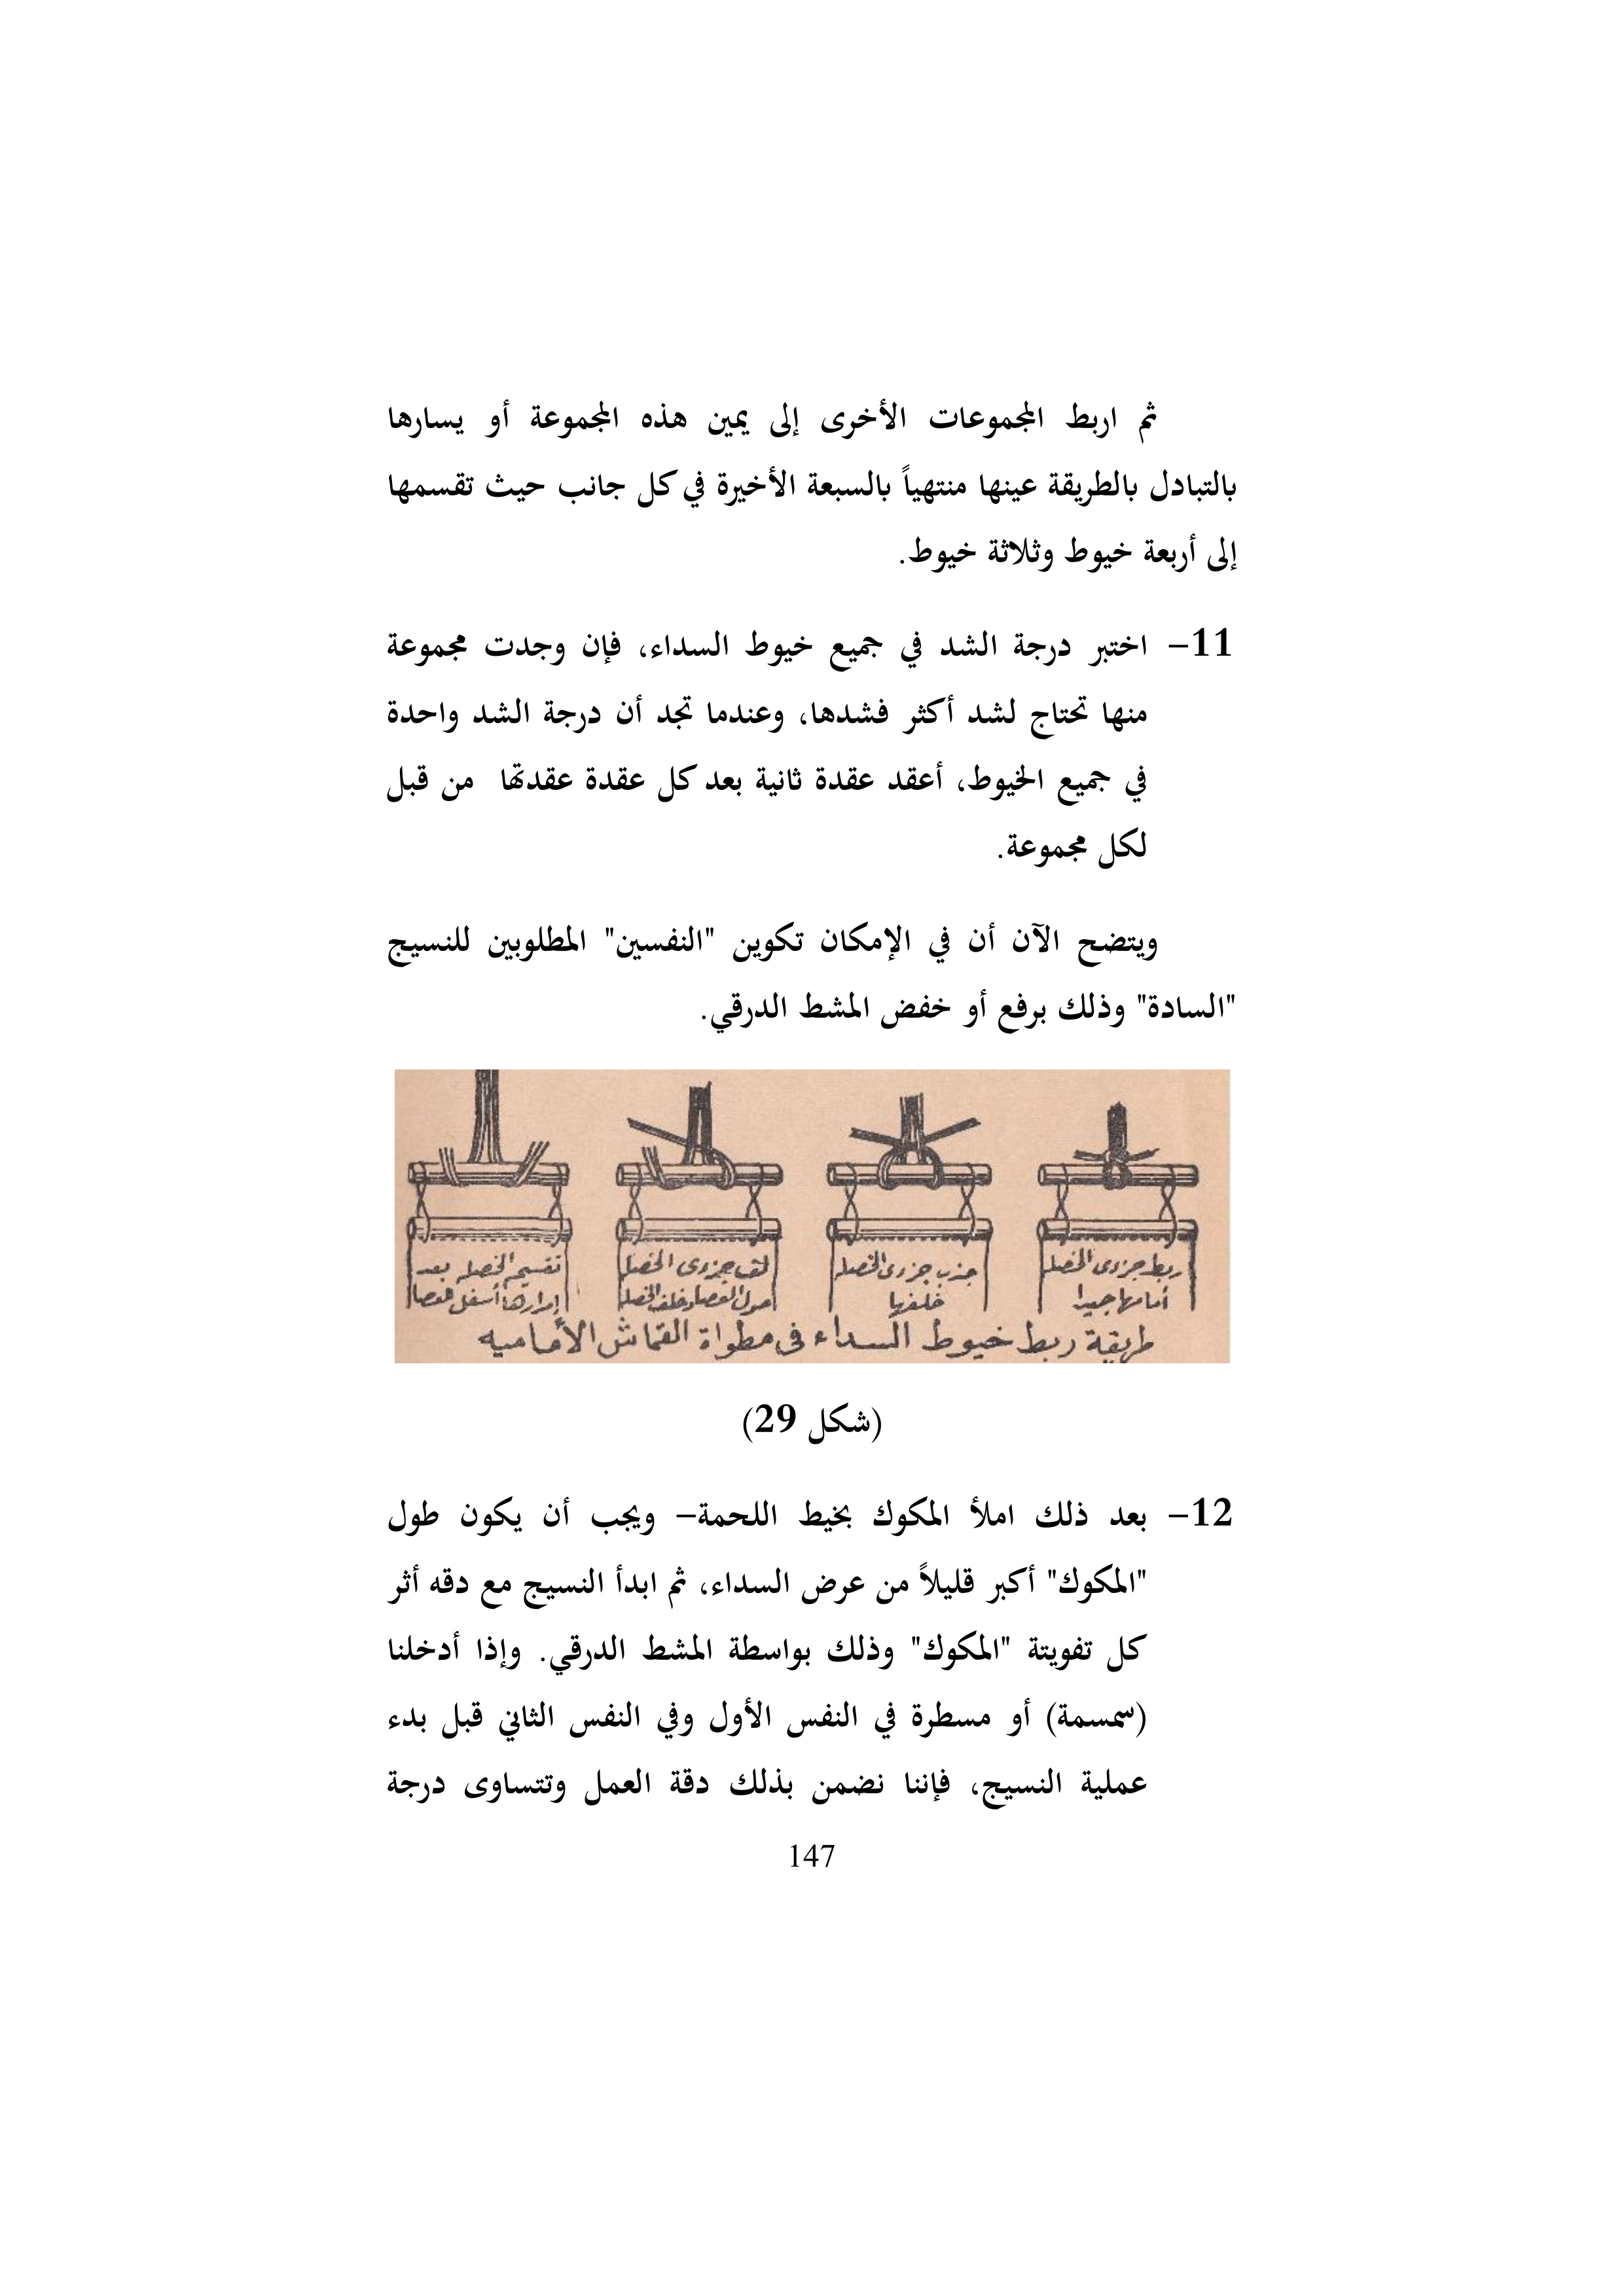 ثم اربط المجموعات الأخرى إلى يمين هذه المجموعة أو يسارها
بالتبادل بالطريقة عينها منتهياً بالسبعة الأخيرة في كل جانب حيث تقسمها
إلى أربعة خيوط وثلاثة خيوط.
11- اختبر درجة الشد في جميع خيوط السداء، فإن وجدت مجموعة
منها تحتاج لشد أكثر فشدها، وعندما تجد أن درجة الشد واحدة
في جميع الخيوط، أعقد عقدة ثانية بعد كل عقدة عقدتها من قبل
لكل مجموعة.
ويتضح الآن أن في الإمكان تكوين "النفسين" المطلوبين للنسيج
"السادة" وذلك برفع أو خفض المشط الدرقي.
ربط جزءى الخصله
أمامها جيدا
جذب جزءى الخصله
خلفها
لف جزءى الخصله
حول العصا وخلف الخصله
تقسيم الخصله بعد
إمرارها أسفل العصا
طريقة ربط خيوط السداء فى مطواة القماش الأماميه
(شكل 29)
12- بعد ذلك املأ المكوك بخيط اللحمة- ويجب أن يكون طول
"المكوك" أكبر قليلاً من عرض السداء، ثم ابدأ النسيج مع دقه أثر
كل تفويتة "المكوك" وذلك بواسطة المشط الدرقي. وإذا أدخلنا
(سمسمة) أو مسطرة في النفس الأول وفي النفس الثاني قبل بدء
عملية النسيج، فإننا نضمن بذلك دقة العمل وتتساوى درجة
147